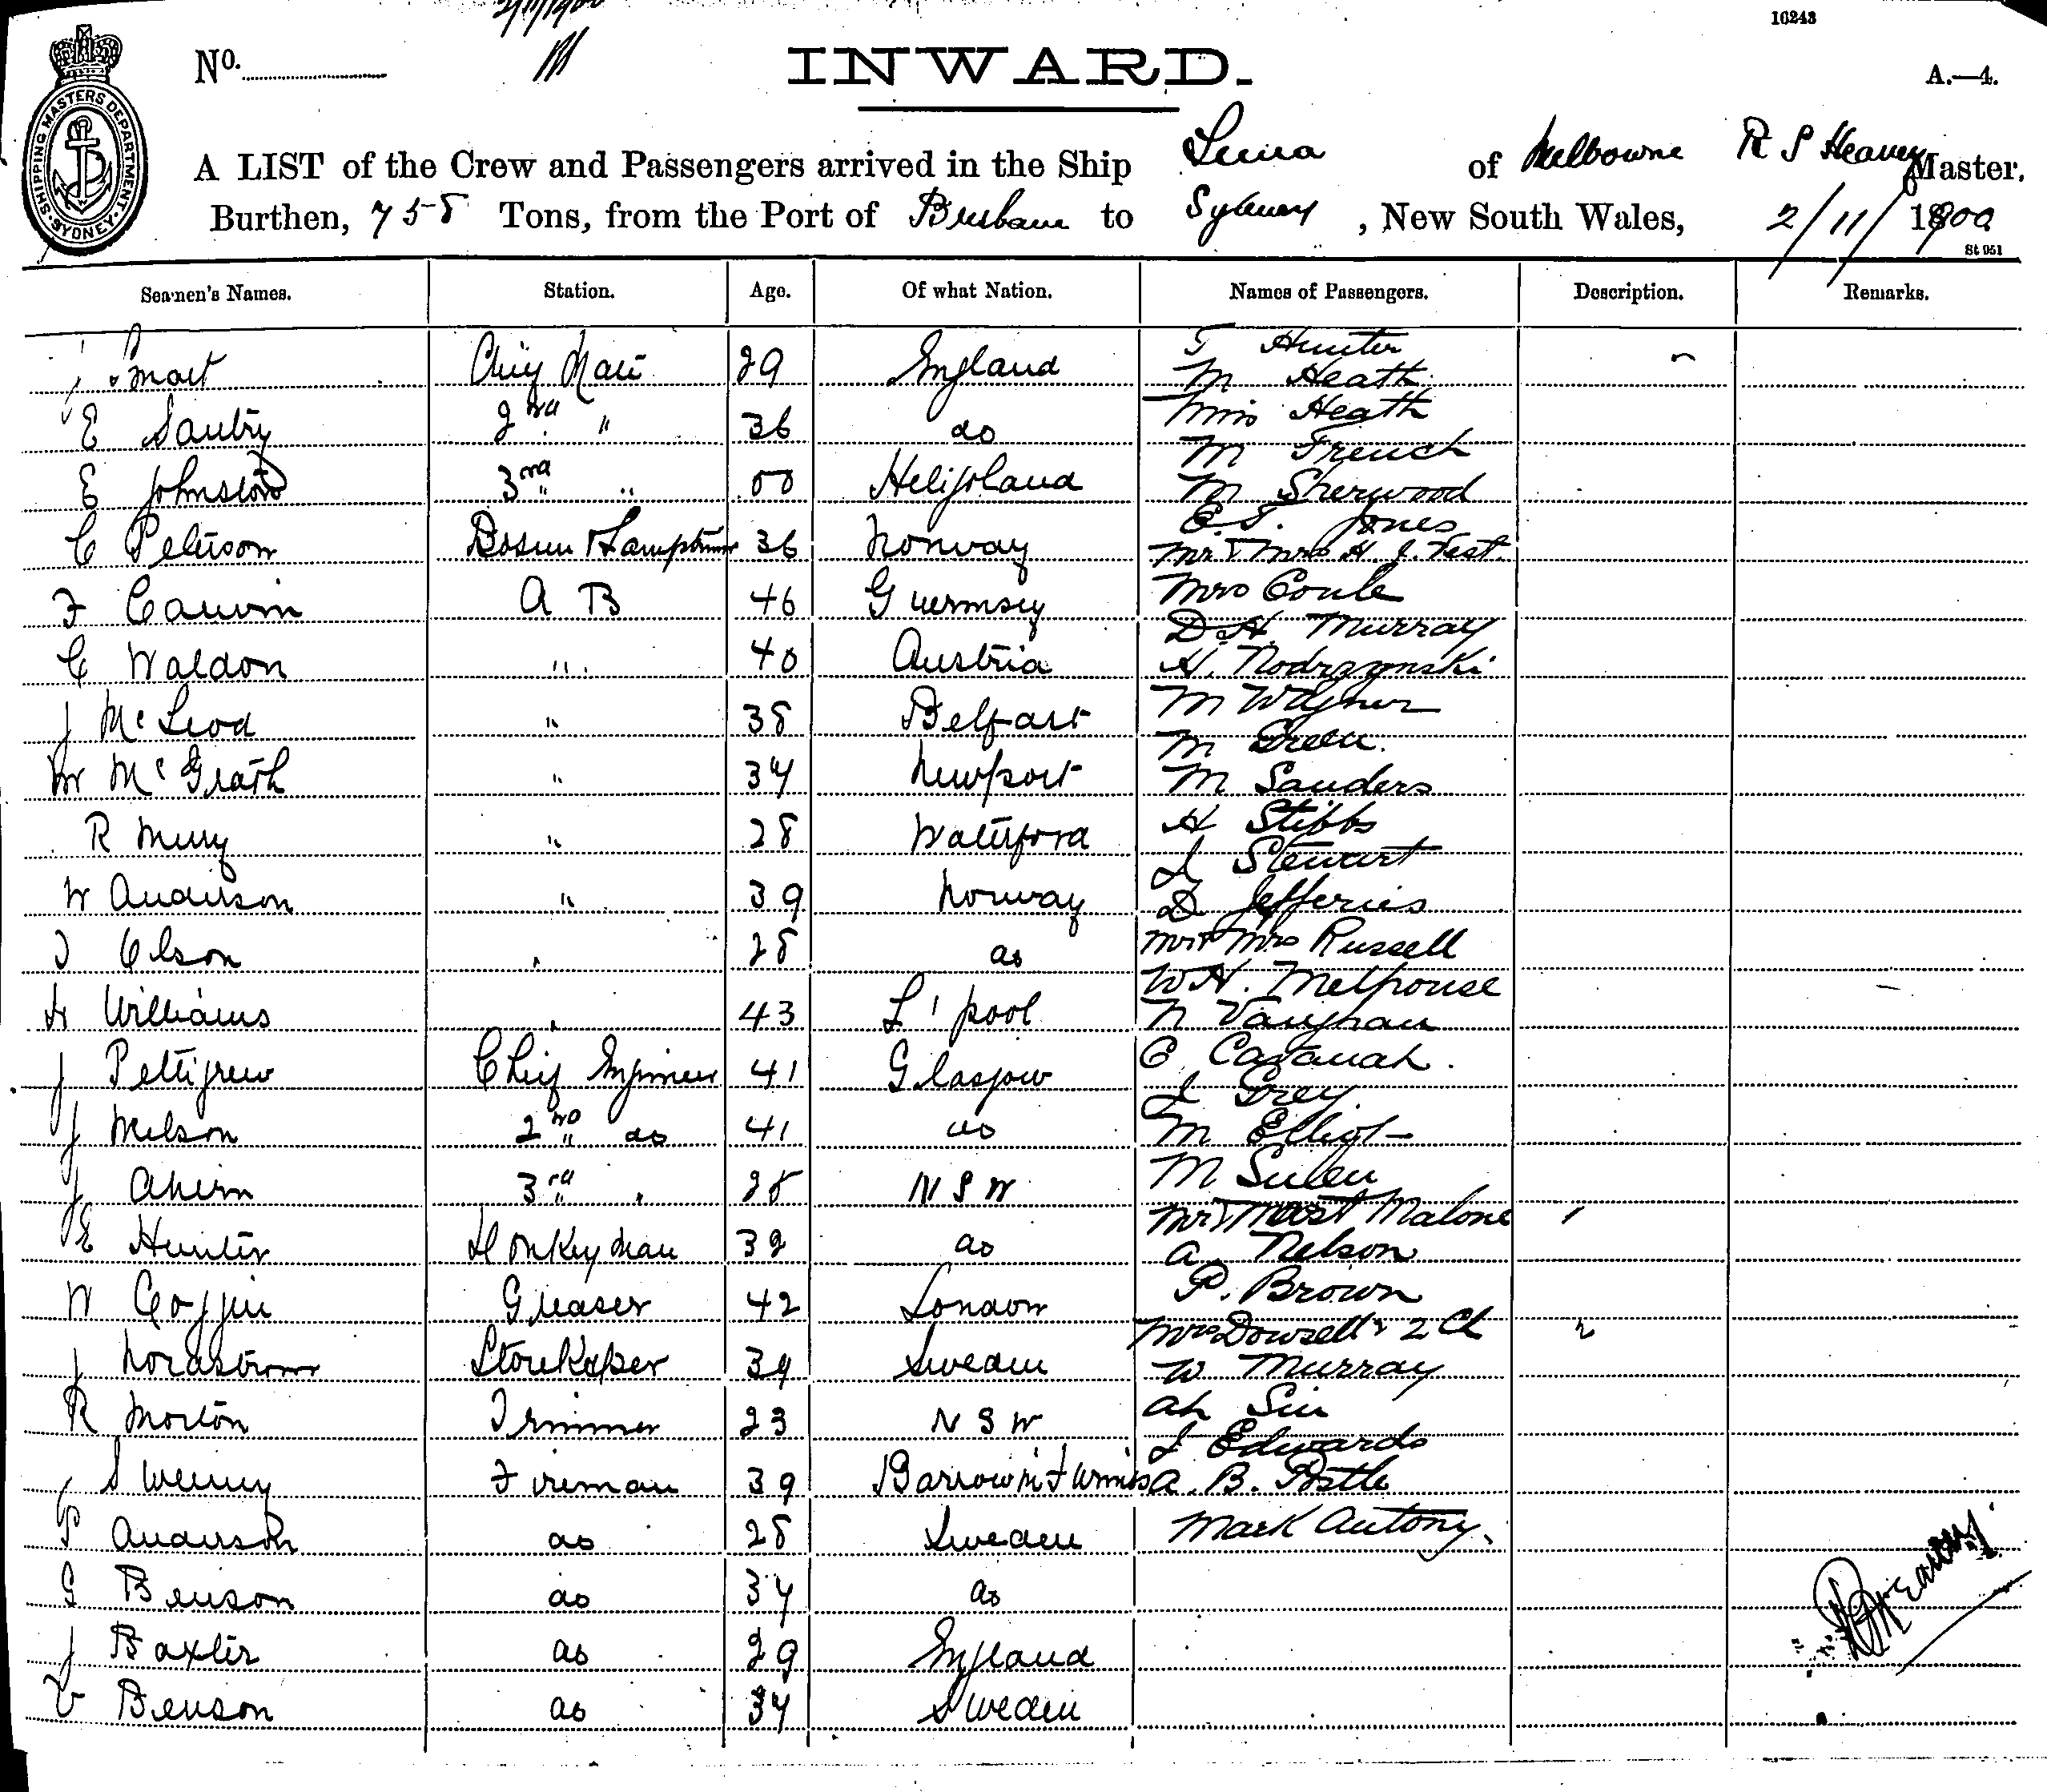 10243
No.
INWARD.
A.—4.
SHIPPING MASTERS DEPARTMENT. SYDNEY.
A LIST of the Crew and Passengers arrived in the Ship of Melbourne R S Heaney Master.
Burthen, 758 Tons, from the Port of Brisbane to Sydney, New South Wales, 2/11/1900
St 951
Seamen's Names. Station. Age. Of what Nation. Names of Passengers. Description. Remarks.
Smart Chief Mate 29 England T Hunter
M Heath
E 2nd " 36 do Miss Heath
M French
E Johnston 3rd " " Heligoland M Sherwood
E. T. Jones
C Peterson Bosun & Lamptrimmer 36 Norway Mr & Mrs H. J. Test.
F A B 46 Guernsey Mrs
D. H. Murray
C Waldon " 40 Austria H.
J McLeod " 38 Belfast M Wagner
M Green.
W McGrath " 34 Newport M Sanders
R Merry " 28 Waterford H Stibbs
J Stewart
W Anderson " 39 Norway D Jefferies
O Olson " 28 do Mr & Mrs Russell
W H.
H Williams " 43 L'pool N Vaughan
J Pettigrew Chief Engineer 41 Glasgow C
J Grey
J Nelson 2nd " do 41 do M Elliot
J Ahern 3rd " " 28 N S W M
Mr & Malone
E Hunter Donkeyman 32 do A. Nelson
W Greaser 42 London P. Brown
Mrs Dowsett & 2 Ch 2
J Nordstrom Storekeeper 34 Sweden W Murray
R Morton Trimmer 23 N S W Ah Sin
J Edwards
Sweeny Fireman 39 Barrow in Furness A. B. Postle
P Anderson do 28 Sweden Mark Antony.
G Benson do 34 do
J Baxter do 29 England
V Benson do 34 Sweden